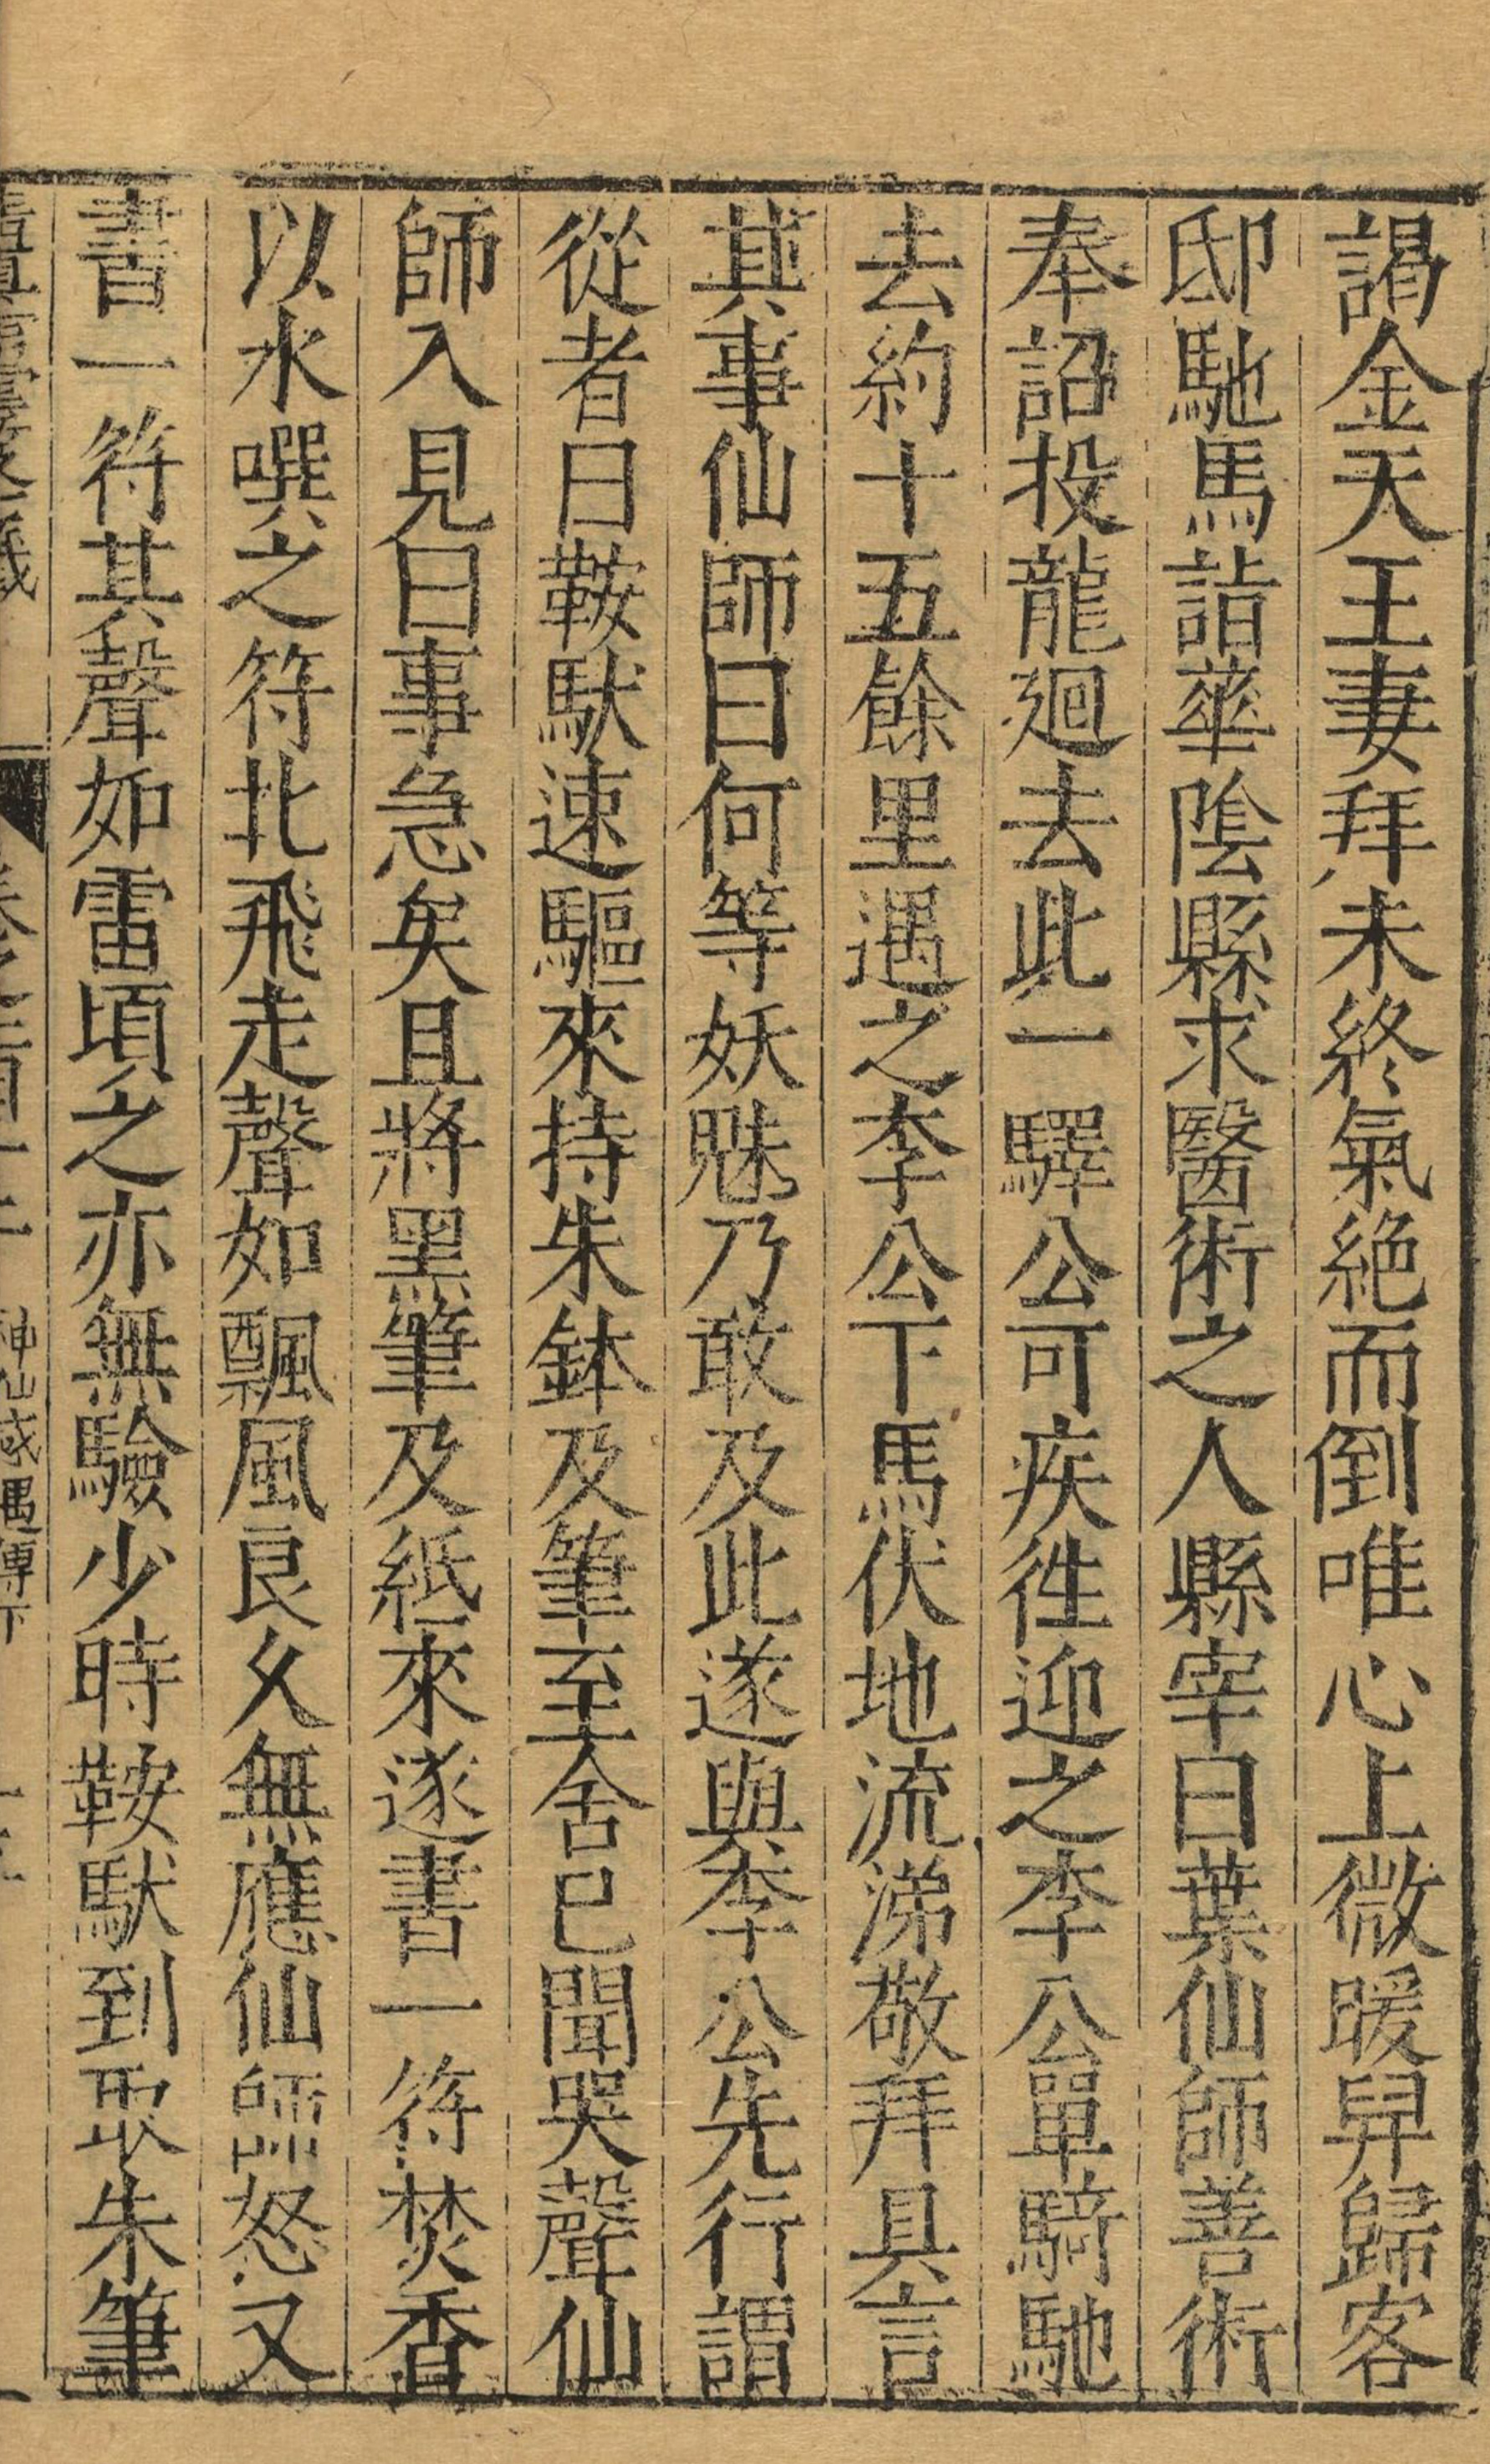 謁金天王妻拜未終氣絕而倒唯心上微暖舁歸客
邸馳馬詣華陰縣求醫術之人縣宰曰葉仙師善術
奉詔投龍迴去此一驛公可疾徃迎之李公單騎馳
去約十五餘里遇之李公下馬伏地流涕敬拜具言
其事仙師曰何等妖魅乃敢及此遂與李公先行謂
從者曰鞍馱速驅來持朱鉢及筆至舍已聞哭聲仙
師入見曰事急矣且將黑筆及紙來遂書一符焚香
以水噀之符北飛走聲如飄風良久無應仙師怒又
書一符其聲如雷頃之亦無驗少時鞍馱到取朱筆
神仙感遇傳下